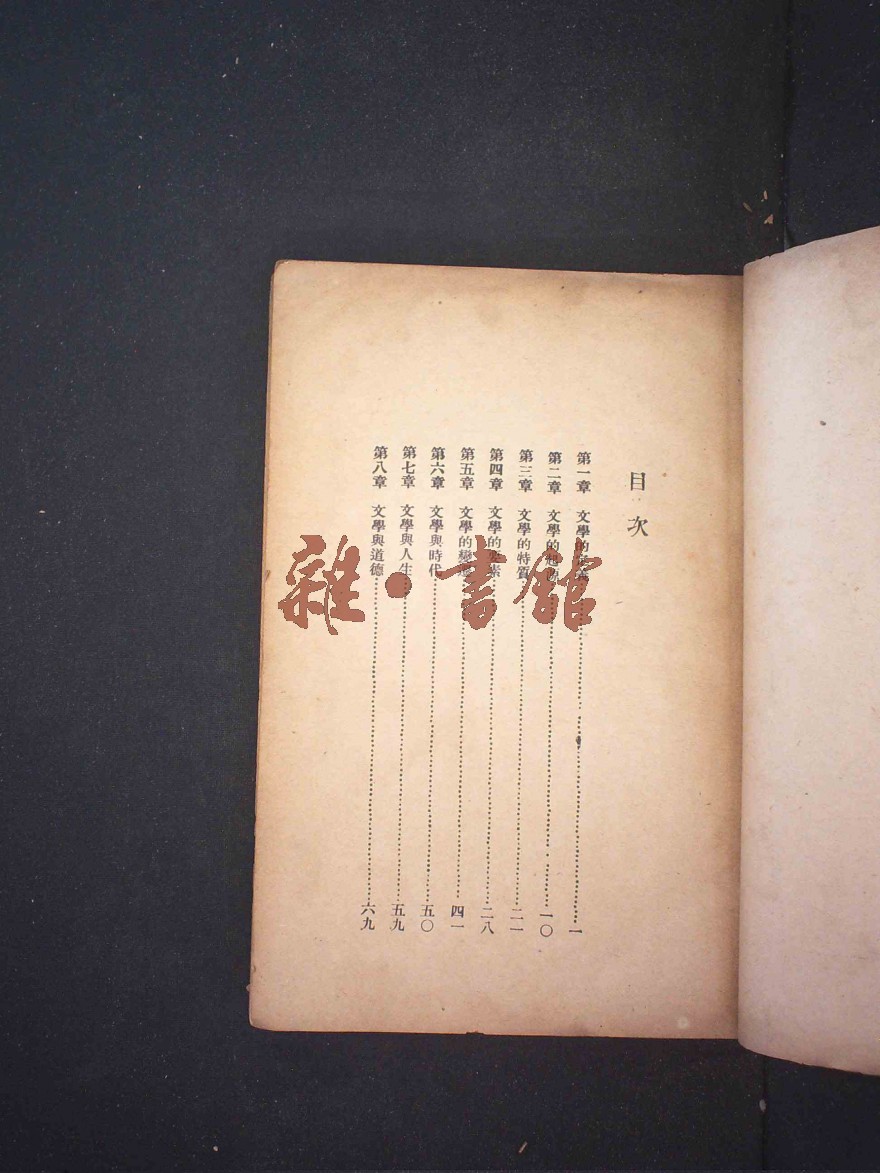 目次
第一章 文學的定義 一
第二章 文學的起源 一〇
第三章 文學的特質 二一
第四章 文學的要素 二八
第五章 文學的變遷 四一
第六章 文學與時代 五〇
第七章 文學與人生 五九
第八章 文學與道德 六九
雜·書館